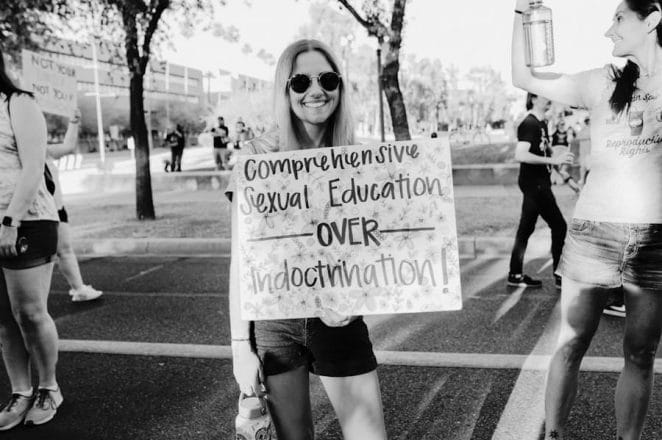 NOT YOUR
NOT YOU
Comprehensive
Sexual Education
OVER
indoctrination!
Reproductive
Rights